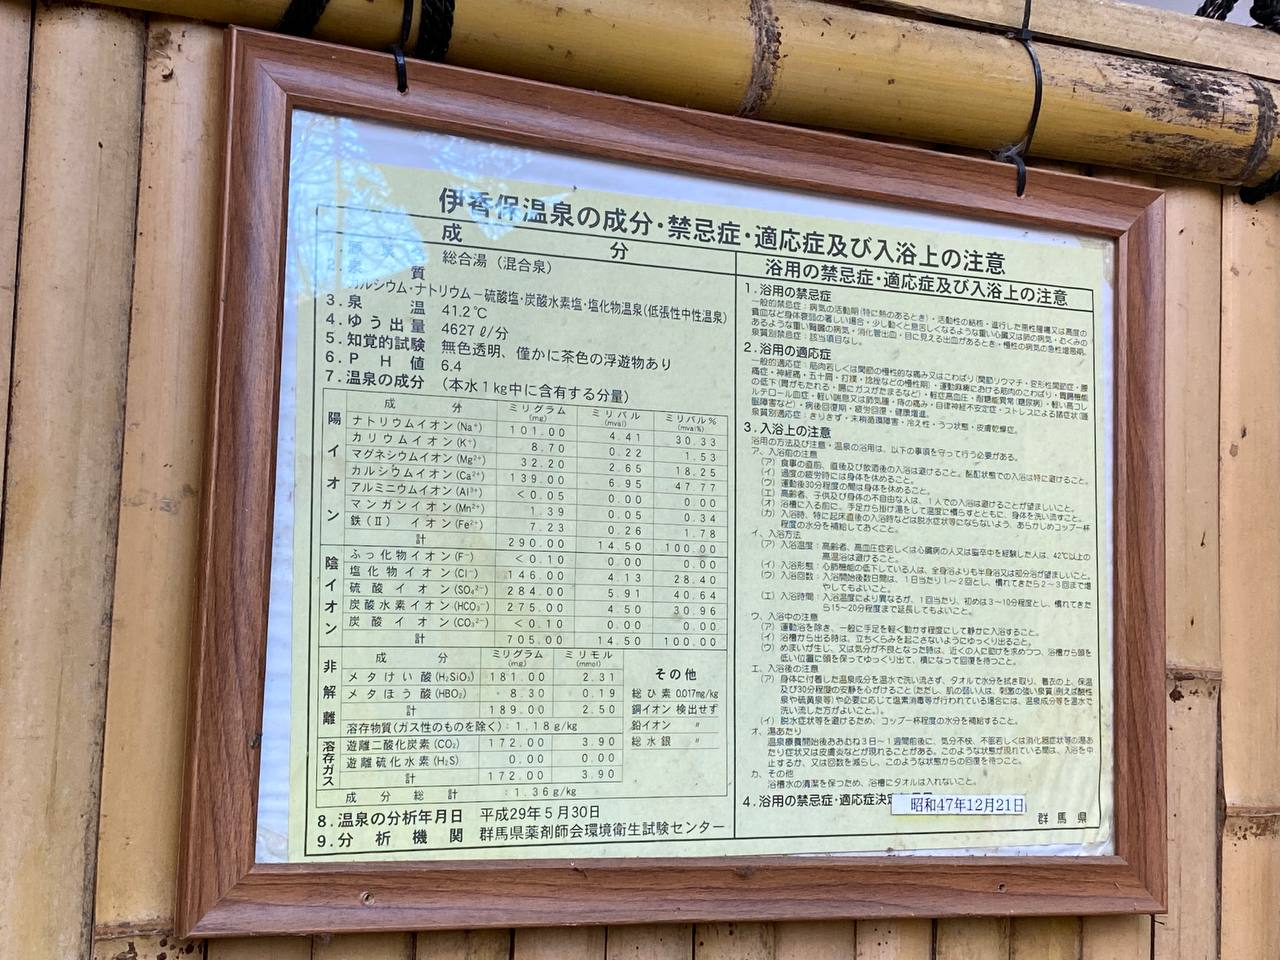 伊香保温泉の成分・禁忌症・適応症及び入浴上の注意
成 分
1. 源 総合湯（混合泉）
2. 泉 質
カルシウム・ナトリウム－硫酸塩・炭酸水素塩・塩化物温泉(低張性中性温泉)
3. 泉 温 41.2℃
4. ゆう出量 4627ℓ/分
5. 知覚的試験 無色透明、僅かに茶色の浮遊物あり
6. P H 値 6.4
7. 温泉の成分 （本水1kg中に含有する分量）
陽イオン
成 分 ミリグラム(mg) ミリバル(mval) ミリバル%(mval%)
ナトリウムイオン(Na⁺) 101.00 4.41 30.33
カリウムイオン(K⁺) 8.70 0.22 1.53
マグネシウムイオン(Mg²⁺) 32.20 2.65 18.25
カルシウムイオン(Ca²⁺) 139.00 6.95 47.77
アルミニウムイオン(Al³⁺) <0.05 0.00 0.00
マンガンイオン(Mn²⁺) 1.39 0.05 0.34
鉄(Ⅱ) イオン(Fe²⁺) 7.23 0.26 1.78
計 290.00 14.50 100.00
陰イオン
ふっ化物イオン(F⁻) <0.10 0.00 0.00
塩化物イオン(Cl⁻) 146.00 4.13 28.40
硫酸イオン(SO₄²⁻) 284.00 5.91 40.64
炭酸水素イオン(HCO₃⁻) 275.00 4.50 30.96
炭酸イオン(CO₃²⁻) <0.10 0.00 0.00
計 705.00 14.50 100.00
非解離
成 分 ミリグラム(mg) ミリモル(mmol)
メタけい酸(H₂SiO₃) 181.00 2.31
メタほう酸(HBO₂) 8.30 0.19
計 189.00 2.50
溶存物質(ガス性のものを除く)：1.18g/kg
溶存ガス
遊離二酸化炭素(CO₂) 172.00 3.90
遊離硫化水素(H₂S) 0.00 0.00
計 172.00 3.90
成分総計：1.36g/kg
その他
総ひ素 0.017mg/kg
銅イオン 検出せず
鉛イオン 〃
総水銀 〃
8. 温泉の分析年月日 平成29年5月30日
9. 分析機関 群馬県薬剤師会環境衛生試験センター
浴用の禁忌症・適応症及び入浴上の注意
1. 浴用の禁忌症
一般的禁忌症：病気の活動期(特に熱のあるとき)・活動性の結核・進行した悪性腫瘍又は高度の
貧血など身体衰弱の著しい場合・少し動くと息苦しくなるような重い心臓又は肺の病気・むくみの
あるような重い腎臓の病気・消化管出血・目に見える出血があるとき・慢性の病気の急性増悪期。
泉質別禁忌症：該当項目なし。
2. 浴用の適応症
一般的適応症：筋肉若しくは関節の慢性的な痛み又はこわばり(関節リウマチ・変形性関節症・腰
痛症・神経痛・五十肩・打撲・捻挫などの慢性期)・運動麻痺における筋肉のこわばり・胃腸機能
の低下(胃がもたれる・腸にガスがたまるなど)・軽症高血圧・耐糖能異常(糖尿病)・軽い高コレ
ステロール血症・軽い喘息又は肺気腫・痔の痛み・自律神経不安定症・ストレスによる諸症状(睡
眠障害など)・病後回復期・疲労回復・健康増進。
泉質別適応症：きりきず・末梢循環障害・冷え性・うつ状態・皮膚乾燥症。
3. 入浴上の注意
浴用の方法及び注意・温泉の浴用は、以下の事項を守って行う必要がある。
ア、入浴前の注意
(ア) 食事の直前、直後及び飲酒後の入浴は避けること。酩酊状態での入浴は特に避けること。
(イ) 過度の疲労時には身体を休めること。
(ウ) 運動後30分程度の間は身体を休めること。
(エ) 高齢者、子供及び身体の不自由な人は、1人での入浴は避けることが望ましいこと。
(オ) 浴槽に入る前に、手足から掛け湯をして温度に慣らすとともに、身体を洗い流すこと。
(カ) 入浴時、特に起床直後の入浴時などは脱水症状等にならないよう、あらかじめコップ一杯
程度の水分を補給しておくこと。
イ、入浴方法
(ア) 入浴温度：高齢者、高血圧症若しくは心臓病の人又は脳卒中を経験した人は、42℃以上の
高温浴は避けること。
(イ) 入浴形態：心肺機能の低下している人は、全身浴よりも半身浴又は部分浴が望ましいこと。
(ウ) 入浴回数：入浴開始後数日間は、1日当たり1～2回とし、慣れてきたら2～3回まで増
やしてもよいこと。
(エ) 入浴時間：入浴温度により異なるが、1回当たり、初めは3～10分程度とし、慣れてきた
ら15～20分程度まで延長してもよいこと。
ウ、入浴中の注意
(ア) 運動浴を除き、一般に手足を軽く動かす程度にして静かに入浴すること。
(イ) 浴槽から出る時は、立ちくらみを起こさないようにゆっくり出ること。
(ウ) めまいが生じ、又は気分が不良となった時は、近くの人に助けを求めつつ、浴槽から頭を
低い位置に保ってゆっくり出て、横になって回復を待つこと。
エ、入浴後の注意
(ア) 身体に付着した温泉成分を温水で洗い流さず、タオルで水分を拭き取り、着衣の上、保温
及び30分程度の安静を心がけること(ただし、肌の弱い人は、刺激の強い泉質(例えば酸性
泉や硫黄泉等)や必要に応じて塩素消毒等が行われている場合には、温泉成分等を温水で
洗い流した方がよいこと。)。
(イ) 脱水症状等を避けるため、コップ一杯程度の水分を補給すること。
オ、湯あたり
温泉療養開始後おおむね3日～1週間前後に、気分不快、不眠若しくは消化器症状等の湯あ
たり症状又は皮膚炎などが現れることがある。このような状態が現れている間は、入浴を中
止するか、又は回数を減らし、このような状態からの回復を待つこと。
カ、その他
浴槽水の清潔を保つため、浴槽にタオルは入れないこと。
4. 浴用の禁忌症・適応症決定 昭和47年12月21日
群馬県